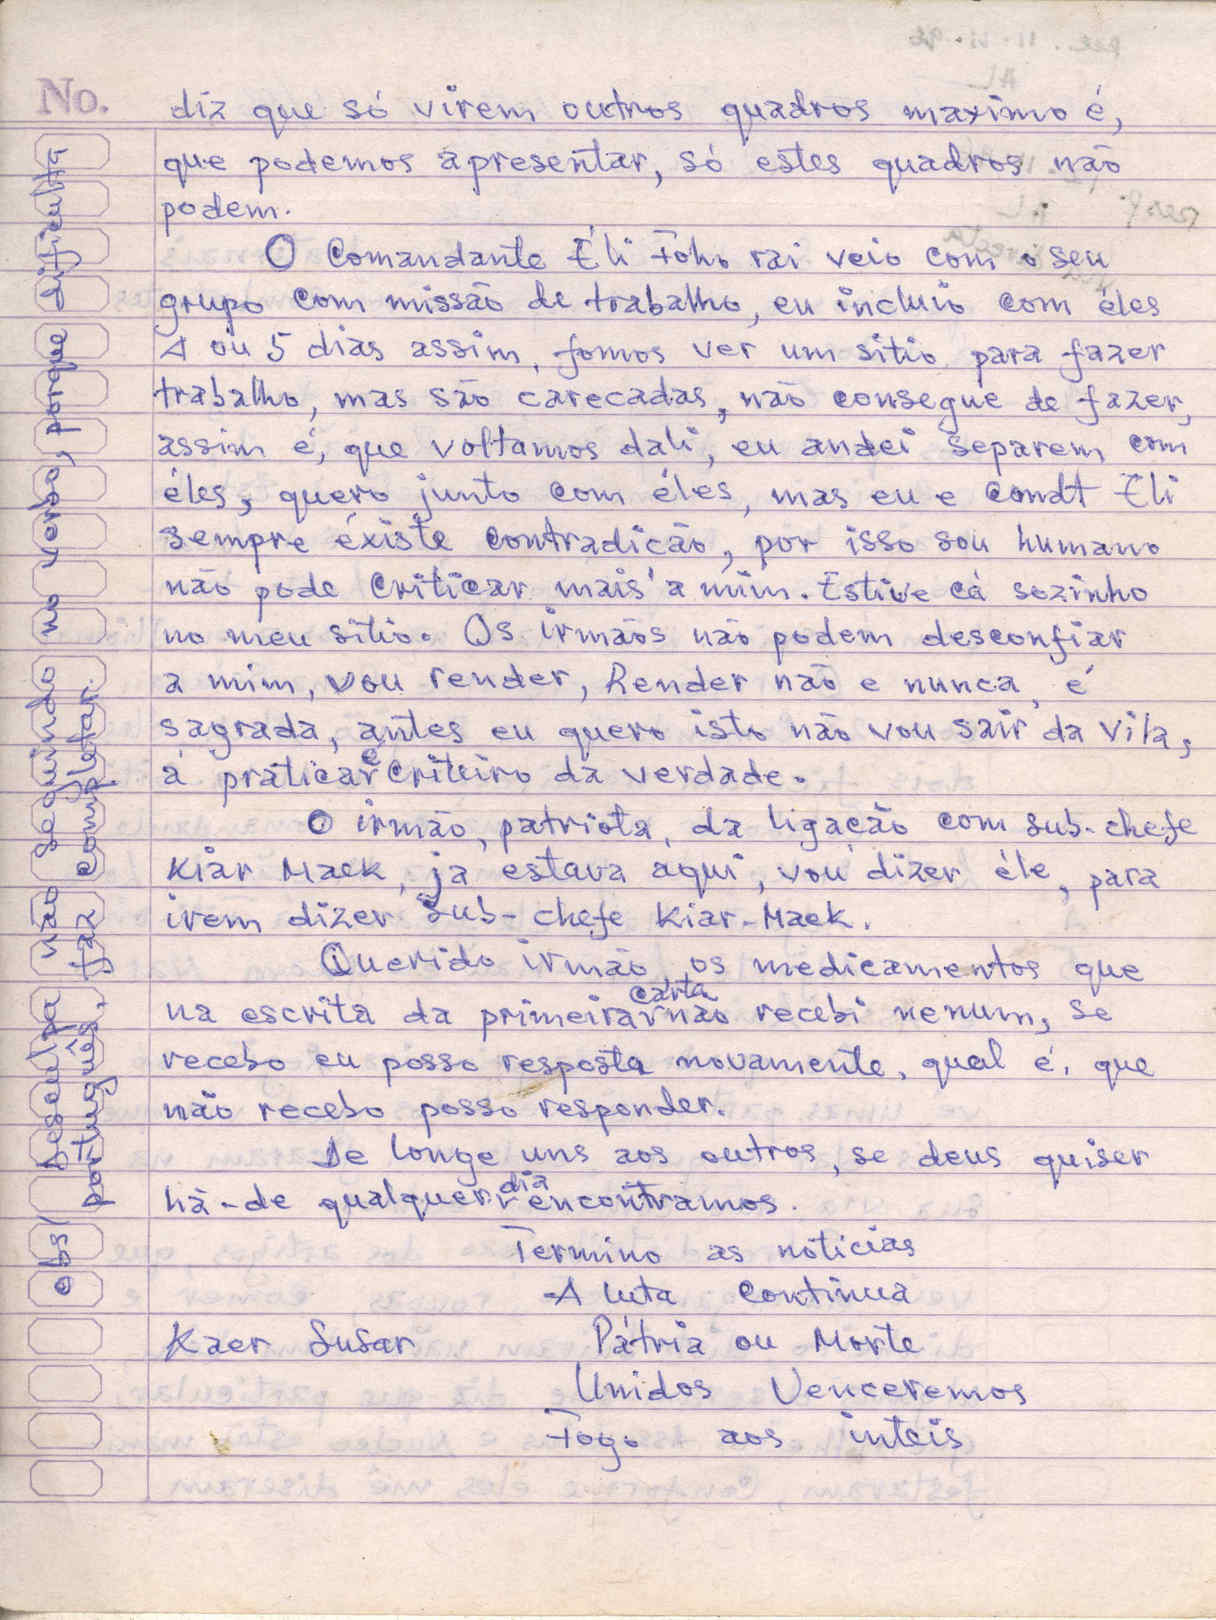 No.
diz que só virem outros quadros maximo é,
que podemos apresentar, só estes quadros não
podem.
O Comandante Éli Foho rai veio com o seu
grupo com missão de trabalho, eu incluio com éles
4 ou 5 dias assim, fomos ver um sitio para fazer
trabalho, mas são carecadas, não consegue de fazer,
assim é, que voltamos dali, eu andei separem com
éles, quero junto com éles, mas eu e Condt Eli
sempre éxiste contradicão, por isso sou humano
não pode criticar mais a mim. Estive cá sozinho
no meu sitio. Os irmãos não podem desconfiar
a mim, vou render, Render não e nunca, é
sagrada, antes eu quero isto não vou sair da vila,
á praticar é criteiro da verdade.
O irmão, patriota, da ligacão com sub-chefe
Kiar Maek, ja estava aqui, vou dizer éle, para
irem dizer Sub-chefe Kiar-Maek.
Querido irmão, os medicamentos que
na escrita da primeira carta não recebi nenum, se
recebo eu posso resposta novamente, qual é, que
não recebo posso responder.
De longe uns aos outros, se deus quiser
há-de qualquer dia encontramos.
Termino as noticias
A luta continua
Kaer Susar Pátria ou Morte
Unidos Venceremos
Fogo aos inteis
obs/ Desculpa não seguindo no verbo, porque dificulta
português, faz completar.